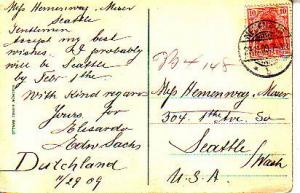 Mess Hemenway, Moser
Seattle
Gentlemen
Accept my best
wishes. I probably
will be Seattle
by Febr 1the
With Kind regard
Yours, for
Elisardo
Edw Sachs
Dutchland
11/29 09
10 10
B+ 148
Mess Hemenway, Moser
304. 1the Ave. So
Seattle
Wash
U.S.A.